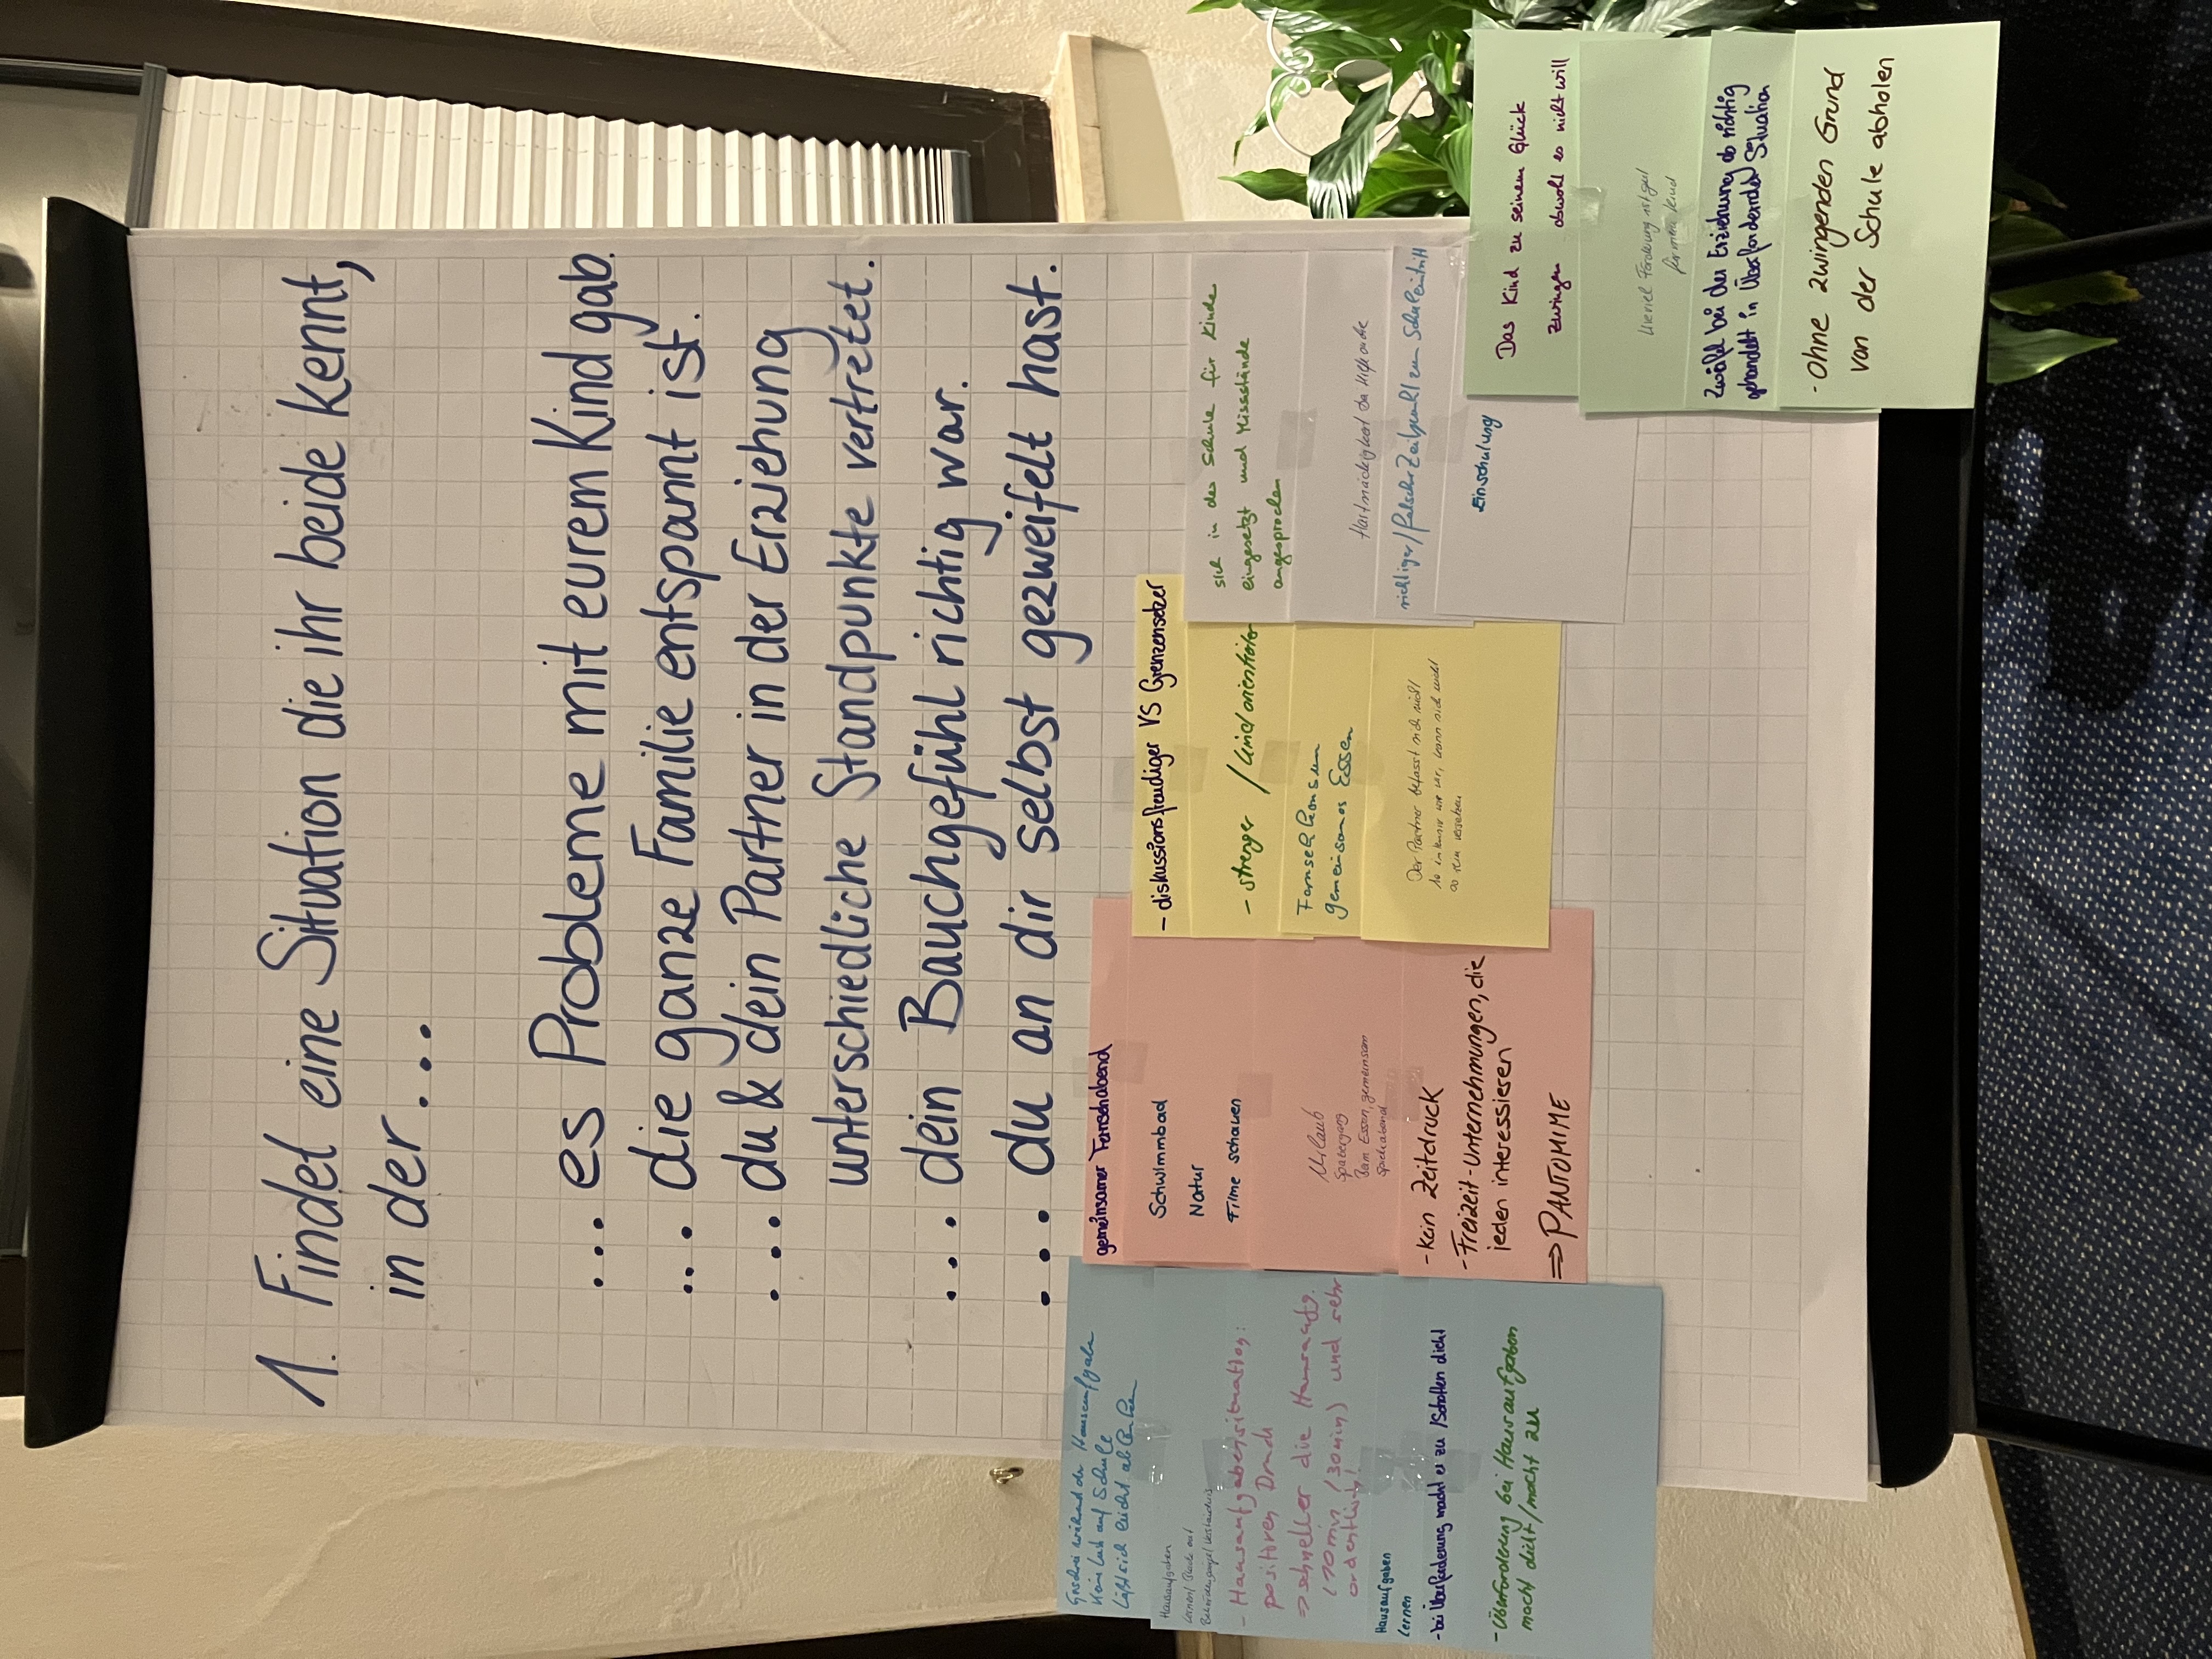 1. Findet eine Situation die ihr beide kennt,
in der ...
... es Probleme mit eurem Kind gab.
... die ganze Familie entspannt ist.
... du & dein Partner in der Erziehung
unterschiedliche Standpunkte vertretet.
... dein Bauchgefühl richtig war.
... du an dir selbst gezweifelt hast.
Geschrei während der Hausaufgabe
Keine Lust auf Schule
Läßt sich leicht ablenken
Hausaufgaben
Lernen
- Hausaufgabensituation:
positiven Druck
=> schneller die Hausaufg.
und sehr
ordentlich!
Hausaufgaben
Lernen
- bei Überforderung macht es zu / Schotten dicht
- Überforderung bei Hausaufgaben
macht dicht / macht zu
gemeinsamer Fernsehabend
Schwimmbad
Natur
Filme schauen
Urlaub
Spaziergang
Beim Essen, gemeinsam
Spieleabend
- Kein Zeitdruck
- Freizeit-Unternehmungen, die
jeden interessieren
=> PANTOMIME
- diskussionsfreudiger VS Grenzensetzer
- strenger / kindorientierter
Fernsehkonsum
gemeinsames Essen
Der Partner befasst sich nicht
so intensiv wie wir, kann sich nicht
verstehen
sich in der Schule für Kinder
eingesetzt und Missstände
angesprochen
Hartnäckigkeit
richtiger / falscher Zeitpunkt zum Schuleintritt
Einschulung
Das Kind zu seinem Glück
zwingen obwohl es nicht will
Wieviel Förderung ist gut
für mein Kind
Zweifel bei der Erziehung ob richtig
gehandelt in Überfordernder Situation
- Ohne zwingenden Grund
von der Schule abholen